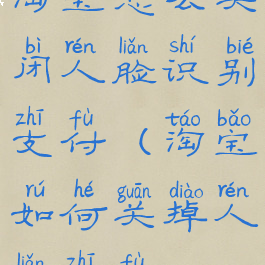 淘宝怎么关
bì rén liǎn shí bié
闭人脸识别
zhī fù táo bǎo
支付（淘宝
rú hé guān diào rén
如何关掉人
liǎn zhī fù